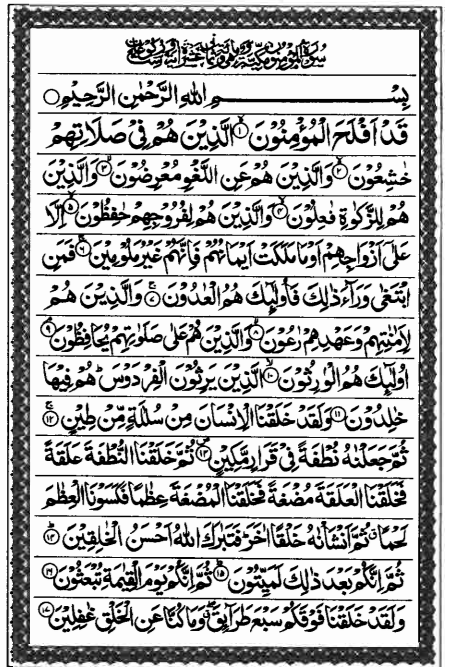 سورة المؤمنون مكية
بِسْمِ اللهِ الرَّحْمٰنِ الرَّحِيْمِ ○
قَدْ اَفْلَحَ الْمُؤْمِنُوْنَ ۙ﴿۱﴾ الَّذِيْنَ هُمْ فِيْ صَلَاتِهِمْ
خٰشِعُوْنَ ۙ﴿۲﴾ وَالَّذِيْنَ هُمْ عَنِ اللَّغْوِ مُعْرِضُوْنَ ۙ﴿۳﴾ وَالَّذِيْنَ
هُمْ لِلزَّكٰوةِ فٰعِلُوْنَ ۙ﴿۴﴾ وَالَّذِيْنَ هُمْ لِفُرُوْجِهِمْ حٰفِظُوْنَ ۙ﴿۵﴾ اِلَّا
عَلٰٓى اَزْوَاجِهِمْ اَوْ مَا مَلَكَتْ اَيْمَانُهُمْ فَاِنَّهُمْ غَيْرُ مَلُوْمِيْنَ ۚ﴿۶﴾ فَمَنِ
ابْتَغٰى وَرَآءَ ذٰلِكَ فَاُولٰٓئِكَ هُمُ الْعٰدُوْنَ ۚ﴿۷﴾ وَالَّذِيْنَ هُمْ
لِاَمٰنٰتِهِمْ وَعَهْدِهِمْ رٰعُوْنَ ۙ﴿۸﴾ وَالَّذِيْنَ هُمْ عَلٰى صَلَوٰتِهِمْ يُحَافِظُوْنَ ۘ﴿۹﴾
اُولٰٓئِكَ هُمُ الْوٰرِثُوْنَ ۙ﴿۱۰﴾ الَّذِيْنَ يَرِثُوْنَ الْفِرْدَوْسَ ؕ هُمْ فِيْهَا
خٰلِدُوْنَ ﴿۱۱﴾ وَلَقَدْ خَلَقْنَا الْاِنْسَانَ مِنْ سُلٰلَةٍ مِّنْ طِيْنٍ ۚ﴿۱۲﴾
ثُمَّ جَعَلْنٰهُ نُطْفَةً فِيْ قَرَارٍ مَّكِيْنٍ ۪﴿۱۳﴾ ثُمَّ خَلَقْنَا النُّطْفَةَ عَلَقَةً
فَخَلَقْنَا الْعَلَقَةَ مُضْغَةً فَخَلَقْنَا الْمُضْغَةَ عِظٰمًا فَكَسَوْنَا الْعِظٰمَ
لَحْمًا ٭ ثُمَّ اَنْشَاْنٰهُ خَلْقًا اٰخَرَ ؕ فَتَبٰرَكَ اللهُ اَحْسَنُ الْخٰلِقِيْنَ ؕ﴿۱۴﴾
ثُمَّ اِنَّكُمْ بَعْدَ ذٰلِكَ لَمَيِّتُوْنَ ؕ﴿۱۵﴾ ثُمَّ اِنَّكُمْ يَوْمَ الْقِيٰمَةِ تُبْعَثُوْنَ ﴿۱۶﴾
وَلَقَدْ خَلَقْنَا فَوْقَكُمْ سَبْعَ طَرَآئِقَ ٭ۖ وَمَا كُنَّا عَنِ الْخَلْقِ غٰفِلِيْنَ ﴿۱۷﴾